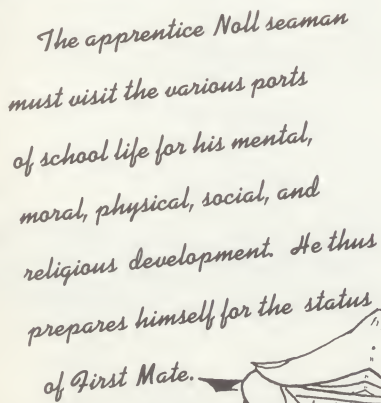 The apprentice Noll seaman
must visit the various ports
of school life for his mental,
moral, physical, social, and
religious development. He thus
prepares himself for the status
of First Mate.